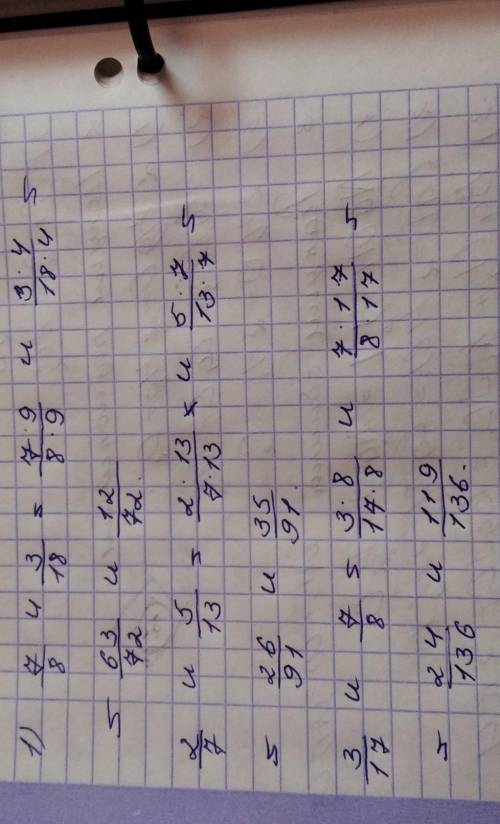 1) 7/8 и 3/18 = 7·9/8·9 и 3·4/18·4 =
= 63/72 и 12/72.
2/7 и 5/13 = 2·13/7·13 = и 5·7/13·7 =
= 26/91 и 35/91.
3/17 и 7/8 = 3·8/17·8 и 7·17/8·17 =
= 24/136 и 119/136.